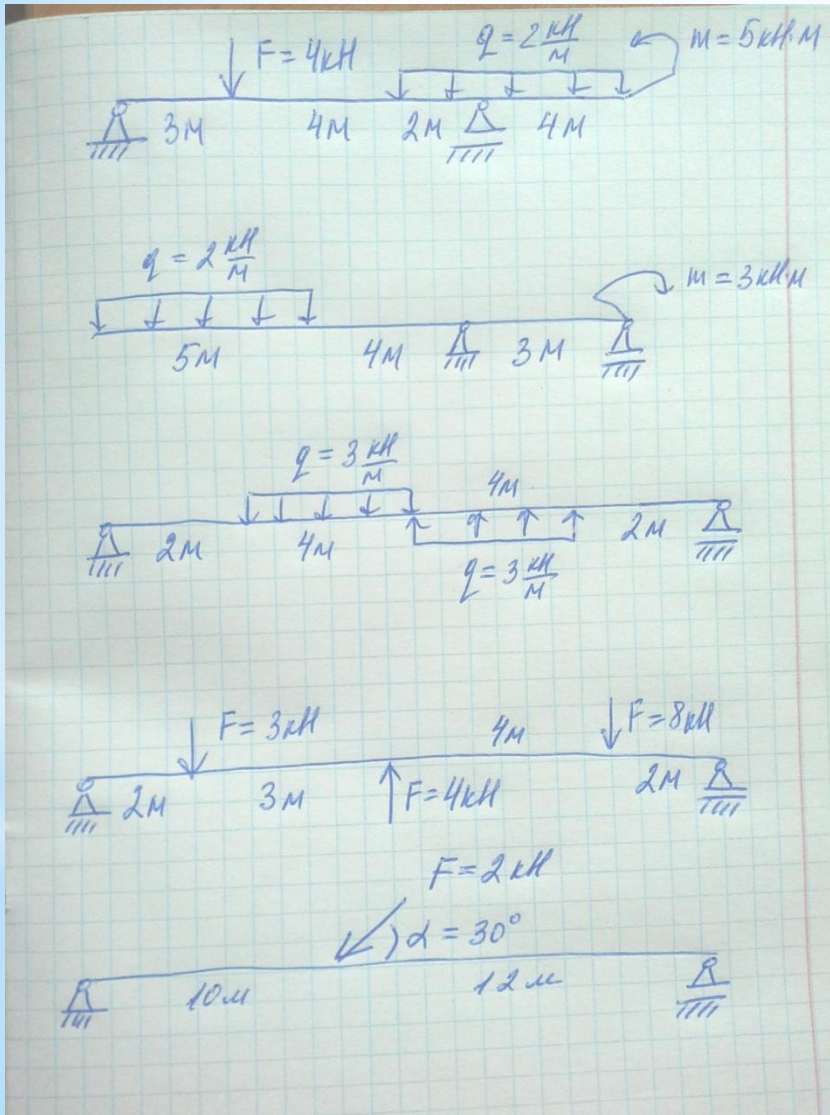 F = 4кН
q = 2 кН/м
m = 5кН·м
3м 4м 2м 4м
q = 2 кН/м
m = 3кН·м
5м 4м 3м
q = 3 кН/м
4м
2м 4м 2м
q = 3 кН/м
F = 3кН
4м
F = 8кН
2м 3м F = 4кН 2м
F = 2 кН
α = 30°
10м 12м